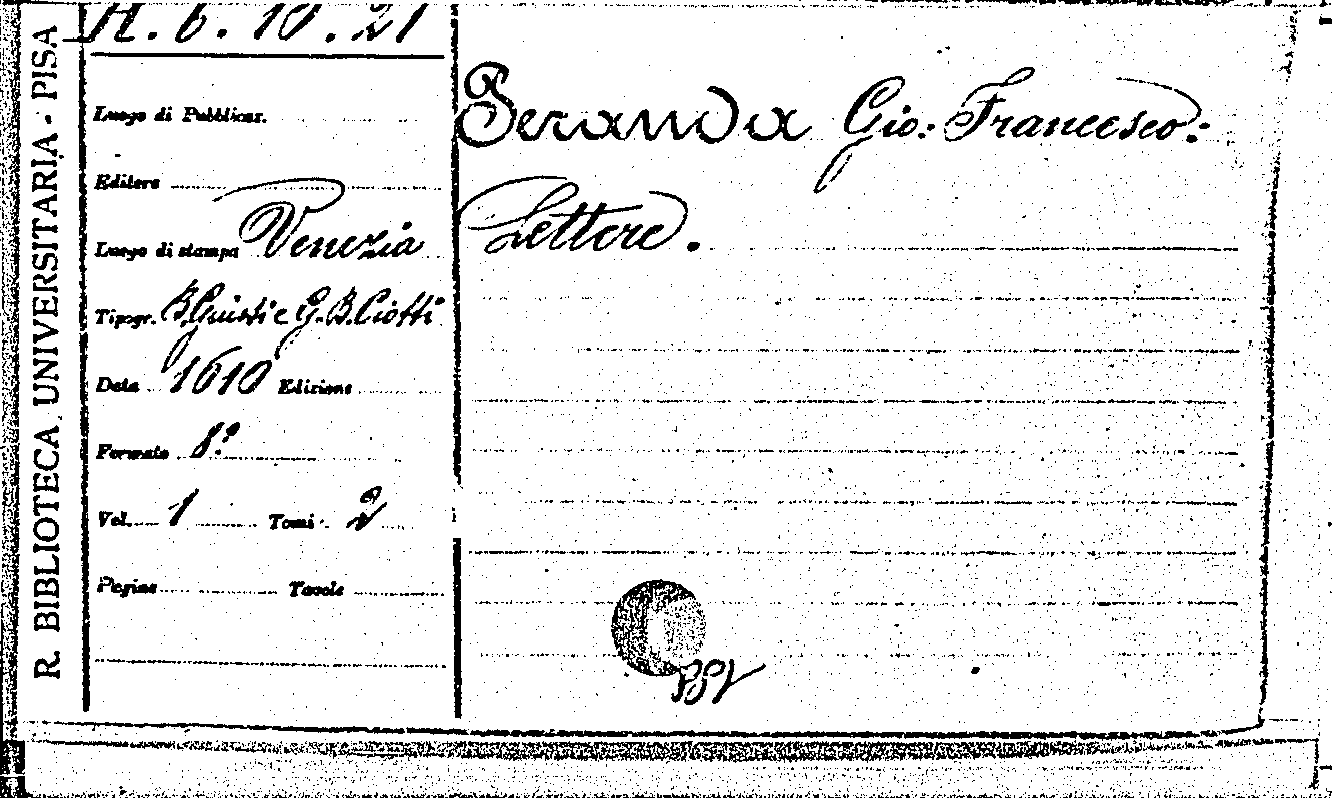 R. BIBLIOTECA UNIVERSITARIA - PISA
H. 6. 10. 21
Luogo di Pubblicaz.
Editore
Luogo di stampa Venezia
Tipogr. B. Giusti e G. B. Ciotti
Data 1610 Edizione
Formato 8º
Vol. 1 Tomi 2
Pagine Tavole
Peranda Gio: Francesco:
Lettere.